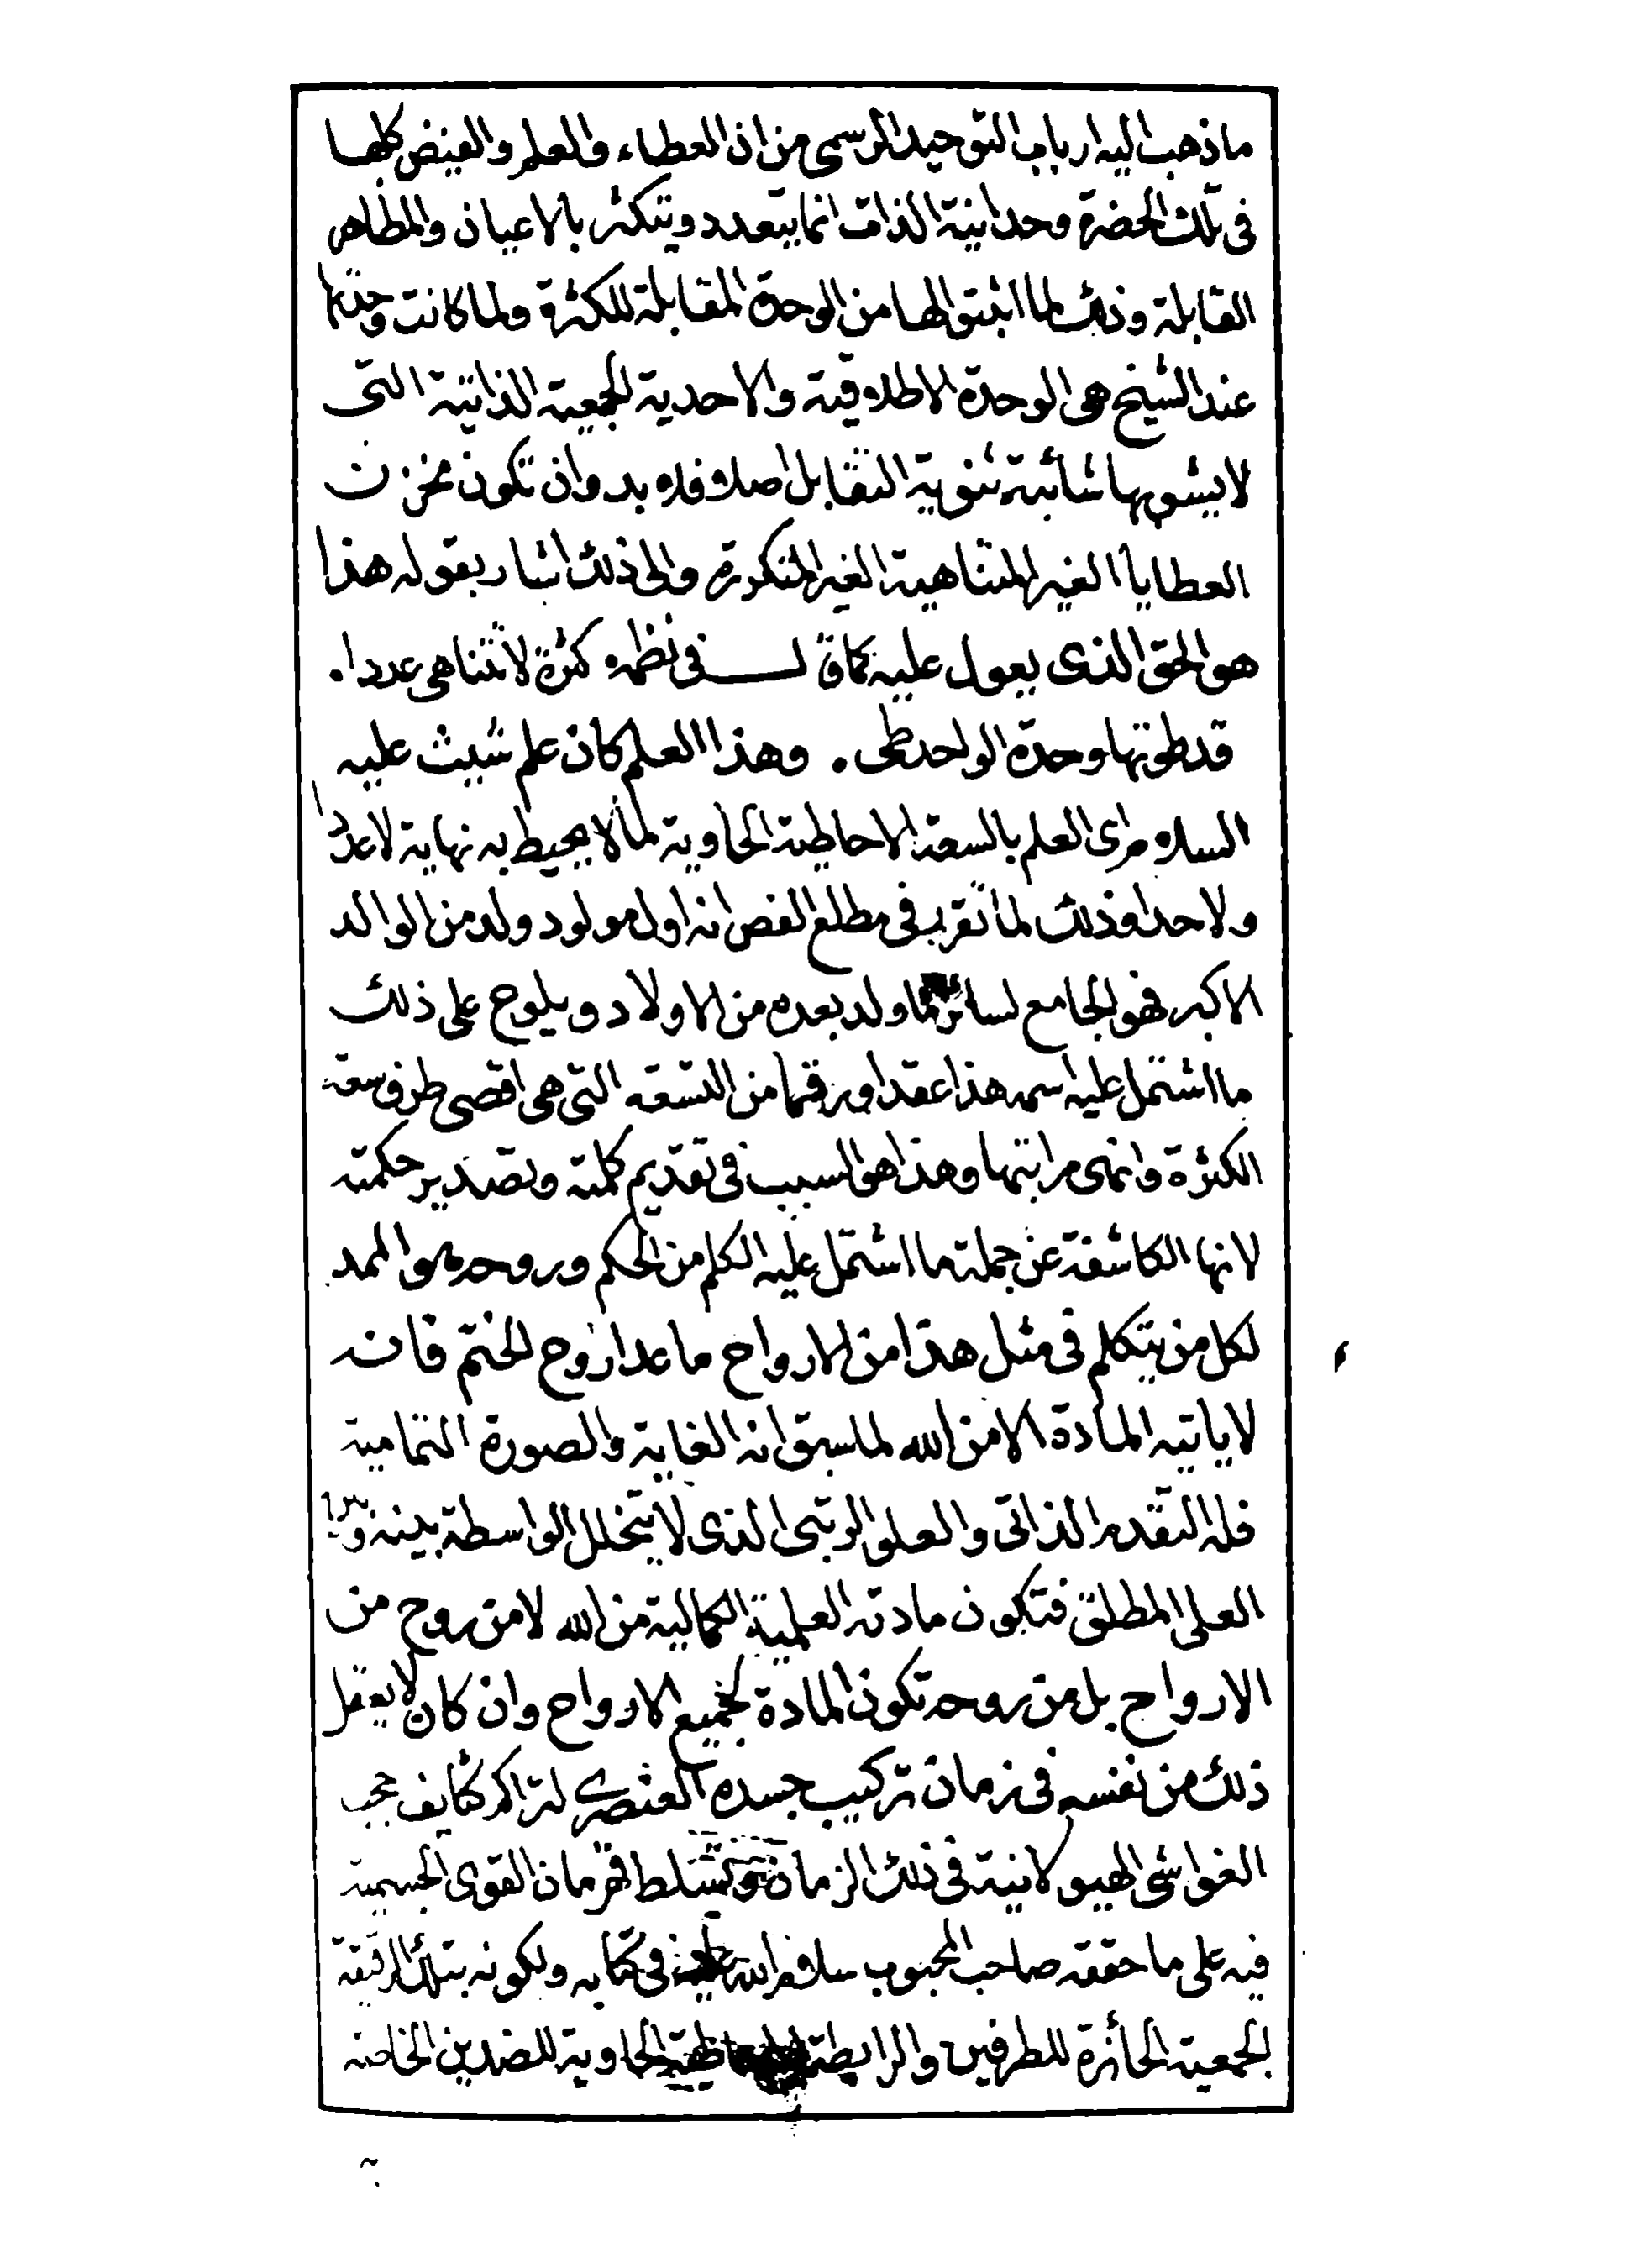 ما ذهب اليه ارباب التوحيد الرسمى من ان العطاء والعلم والفيض كلها
فى تلك الحضرة وحدانية الذات انما يتعدد ويتكثر بالاعيان والمظاهر
القابلة وذلك لما اثبتوا لها من الوحدة المقابلة للكثرة ولما كانت وحدتها
عند الشيخ هى الوحدة الاطلاقية والاحدية الجمعية الذاتية التى
لا يشوبها شائبة ثنوية التقابل اصلا فلا بد وان تكون مخزن
العطايا الغير المتناهية الغير المتكررة والى ذلك اشار بقوله هذا
هو الحق الذى يعول عليه كما قال فى نظمه كثرة لا تتناهى عددا .
قد طوتها وحدة الواحد طى . وهذا العلم كان علم شيث عليه
السلام اى العلم بالسعة الاحاطية الحاوية لما لا يحيط به نهاية لا عددا
ولا حدا وذلك لما تقرر فى مطلع الفص انه اول مولود ولد من الوالد
الاكبر فهو الجامع لسائر ما ولد بعده من الاولاد ويلوح على ذلك
ما اشتمل عليه اسمه هذا عقدا ورقما من التسعة التى هى اقصى طرف سعة
الكثرة وانهى مراتبها وهذا هو السبب فى تقديم كلمته وتصدير حكمته
لانها الكاشفة عن جملة ما اشتمل عليه الكلم من الحكم وروحه هو الممد
لكل من يتكلم فى مثل هذا من الارواح ما عدا روح الختم فانه
لا ياتيه المادة الا من الله لما سبق انه الغاية والصورة التمامية
فله التقدم الذاتى والعلو الرتبى الذى لا يتخلل الواسطة بينه وبين
العلى المطلق فتكون مادته العلمية الكمالية من الله لا من روح من
الارواح بل من روحه تكون المادة لجميع الارواح وان كان لا يعقل
ذلك من نفسه فى زمان تركيب جسده العنصرى لتراكم كثايف حجب
الغواشى الهيولانية فى ذلك الزمان وتسلط قهرمان القوى الجسمية
فيه على ما حققه صاحب المحبوب سلام الله عليه فى كتابه ولكونه بتلك الرقيقة
الجمعية الحائزة للطرفين والرابطة الحاوية للضدين الخاصة